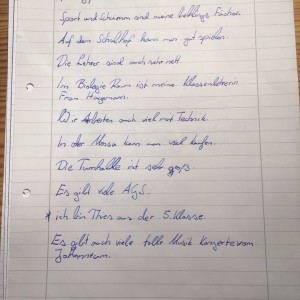 Sport und Schwimm sind meine lieblings Fächer.
Auf dem Schulhof kann man gut spielen.
Die Lehrer sind auch sehr nett.
Im Biologie Raum ist meine Klassenlehrerin
Frau Hagemann.
Wir Arbeiten auch viel mit Technik.
In der Mensa kann man viel kaufen.
Die Turnhalle ist sehr groß.
Es gibt viele AGS.
* ich bin Thies aus der 5. Klasse.
Es gibt auch viele tolle Musik Konzerte vom
Johanneum.